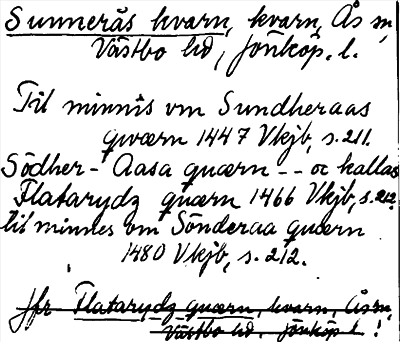 Sunnerås kvarn, kvarn, Ås sn,
Västbo hd, Jönköp. l.
Til minnis vm Sundheraas
qwærn 1447 Vkjb, s. 211.
Södher- Aasa quærn -- oc kallas
Flatarydz quærn 1466 Vkjb, s. 212.
til minnes om Sönderaa quærn
1480 Vkjb, s. 212.
Jfr Flatarydz quærn, kvarn, Ås sn,
Västbo hd, Jönköp l. !